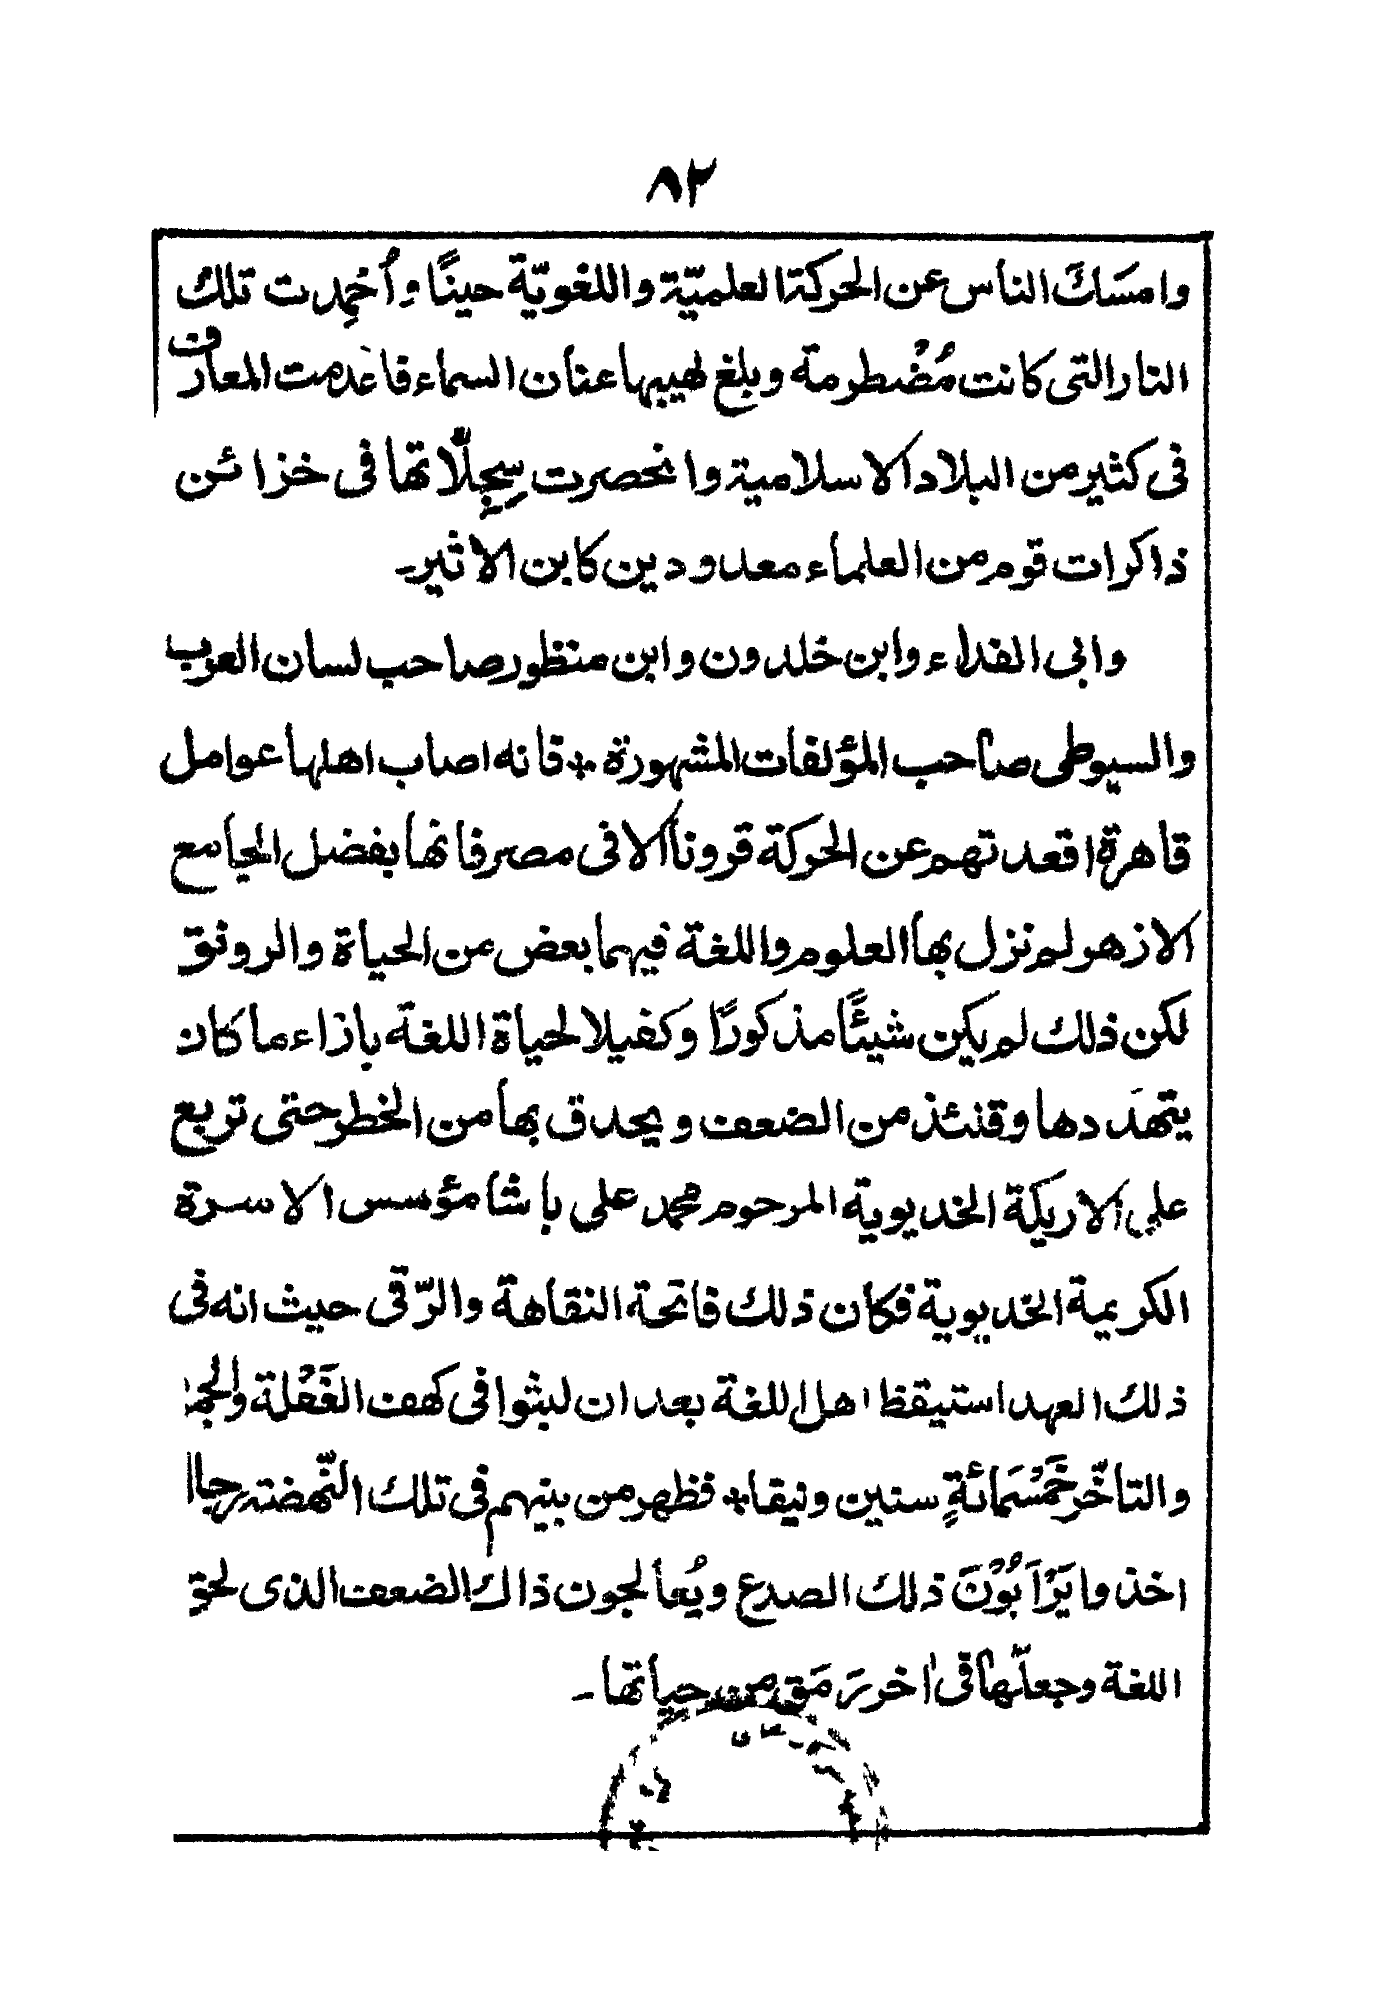 ٨٢
وامسَاكَ الناس عن الحركة العلميّة واللغويّة حينًا وأُخمِدت تلك
النار التى كانت مُضْطرمة وبلغ لهيبها عنان السماء فاعدمت المعارف
فى كثير من البلاد الاسلامية وانحصرت سِجِلّاتها فى خزائن
ذاكرات قوم من العلماء معدودين كابن الاثير۔
وابى الفداء وابن خلدون وابن منظور صاحب لسان العرب
والسيوطى صاحب المؤلفات المشهورة * فانه اصاب اهلها عوامل
قاهرة اقعدتهم عن الحركة قروناً الا فى مصر فانها بفضل الجامع
الازهر لم نزل بها العلوم واللغة فيهما بعض من الحياة والرونق
لكن ذلك لم يكن شيئًا مذكورًا وكفيلا لحياة اللغة بازاء ما كان
يتهدَدها وقتئذ من الضعف ويحدق بها من الخطر حتى تربع
على الاريكة الخديوية المرحوم محمد على باشا مؤسس الاسرة
الكريمية الخديوية فكان ذلك فاتحة النقاهة والرّقى حيث انه فى
ذلك العهد استيقظ اهل اللغة بعد ان لبثوا فى كهف الغَفْلة والجمـ
والتأخّر خَمْسَمائةٍ سنين ونيفا * فظهر من بينهم فى تلك النّهضة رجال
اخذوا يَرْاَبُوْنَ ذلك الصدع ويُعالجون ذاك الضعف الذى لحق
اللغة وجعلّها فى اٰخر رَمَق من حياتها۔